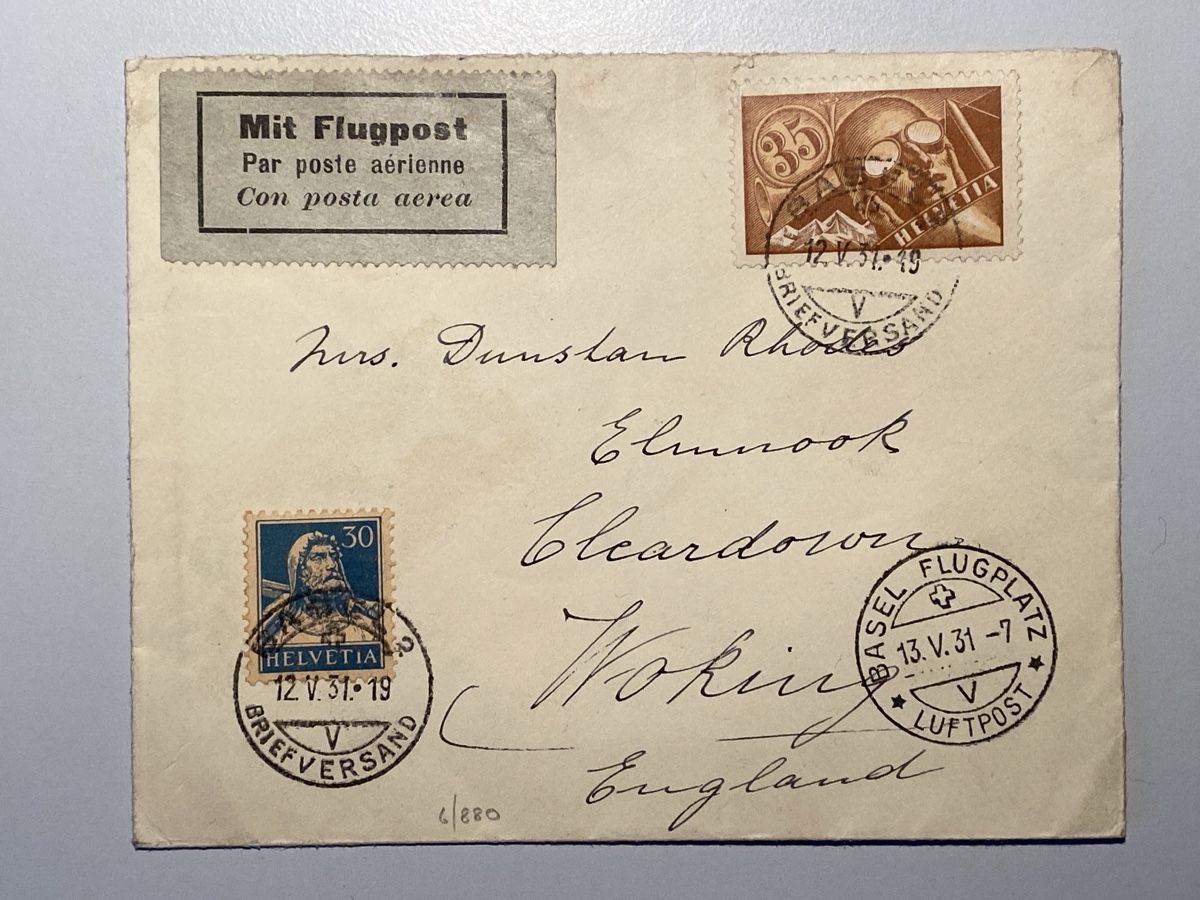 Mit Flugpost
Par poste aérienne
Con posta aerea
35
HELVETIA
BASEL
12.V.31.19
V
BRIEFVERSAND
Mrs. Dunstan Rhodes
Elmnook
Cleardown
Woking
England
30
HELVETIA
BASEL 2
12.V.31.19
V
BRIEFVERSAND
BASEL FLUGPLATZ
13.V.31-7
V
LUFTPOST
6/880